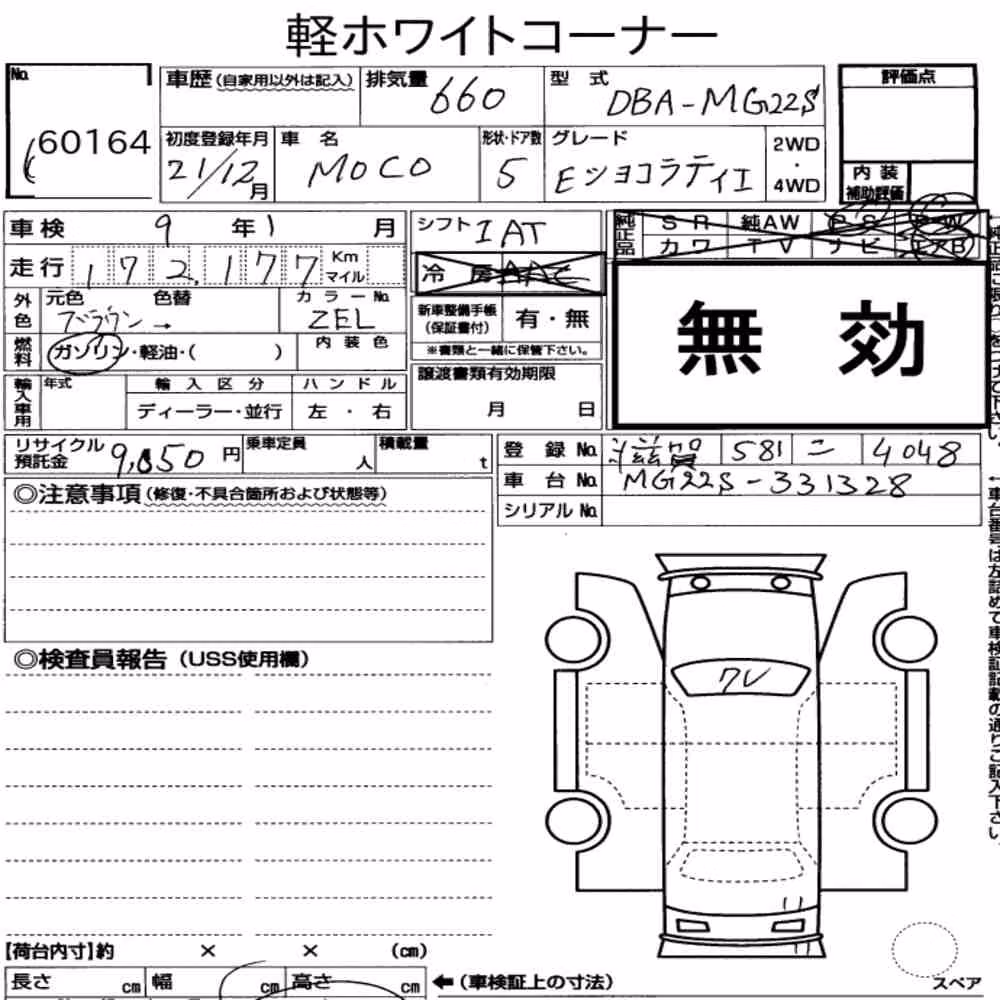 軽ホワイトコーナー
No.
60164
車歴(自家用以外は記入) 排気量 660 型 式 DBA-MG22S
初度登録年月 21/12月 車 名 MOCO 形状・ドア数 5 グレード Eショコラティエ 2WD・4WD
評価点
内 装
補助評価
車検 9 年 1 月
走行 172,177 Km マイル
外色 元色 ブラウン → 色替 カラーNo. ZEL
燃料 ガソリン・軽油・( ) 内装色
輸入車用 年式 輸入区分 ハンドル
ディーラー・並行 左・右
シフト IAT
冷 房 AAC
新車整備手帳
(保証書付) 有・無
※書類と一緒に保管下さい。
譲渡書類有効期限
月 日
純正品 SR 純AW PS PW
カワ TV ナビ エアB
無 効
リサイクル
預託金 9,850 円 乗車定員 人 積載量 t
登 録 No. 滋賀 581 ニ 4048
車 台 No. MG22S-331328
シリアル No.
◎注意事項(修復・不具合箇所および状態等)
◎検査員報告(USS使用欄)
ワレ
【荷台内寸】約 × × (cm)
長さ cm 幅 cm 高さ cm
←(車検証上の寸法)
スペア
←車台番号は左詰めで車検証記載の通りご記入下さい。